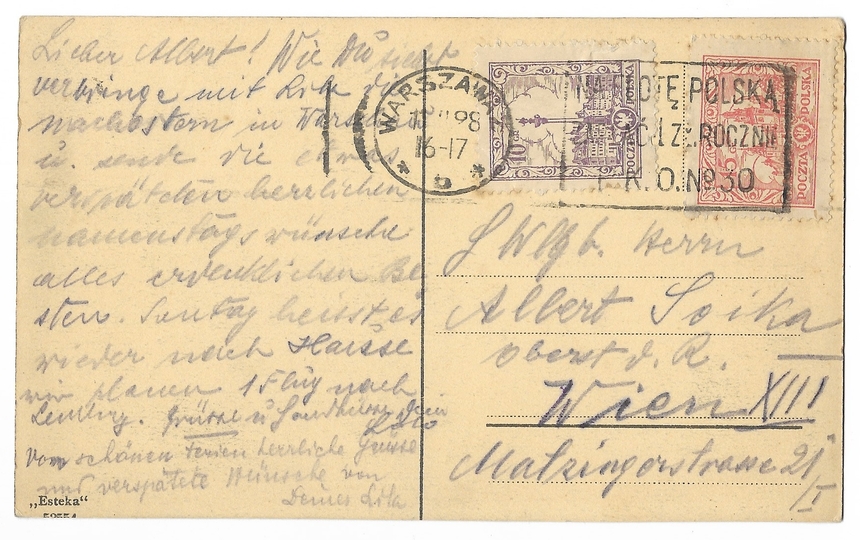 Lieber Albert! Wie Du siehst
verbringe mit Lila die
in Warschau
u. sende die etwas
verspäteten herrlichen
namenstags wünsche
alles erdenklichen Be
sten. Sontag heisst es
wieder nach Hause
wir planen 1 Flug nach
Lemberg. Grüsse u Handküsse Dein
von schönen Ferien herrliche Grüsse
und verspätete Wünsche von
Deines Lila
„Esteka“
WARSZAWA
16-17
* b *
10
POCZTA POLSKA
15
POCZTA POLSKA
NA FLOTĘ POLSKĄ
1 ZŁ. ROCZNIE
P.K.O. № 30
Herrn
Albert Soika
oberst d. R.
Wien XIII
Matzingerstrasse 21
/I